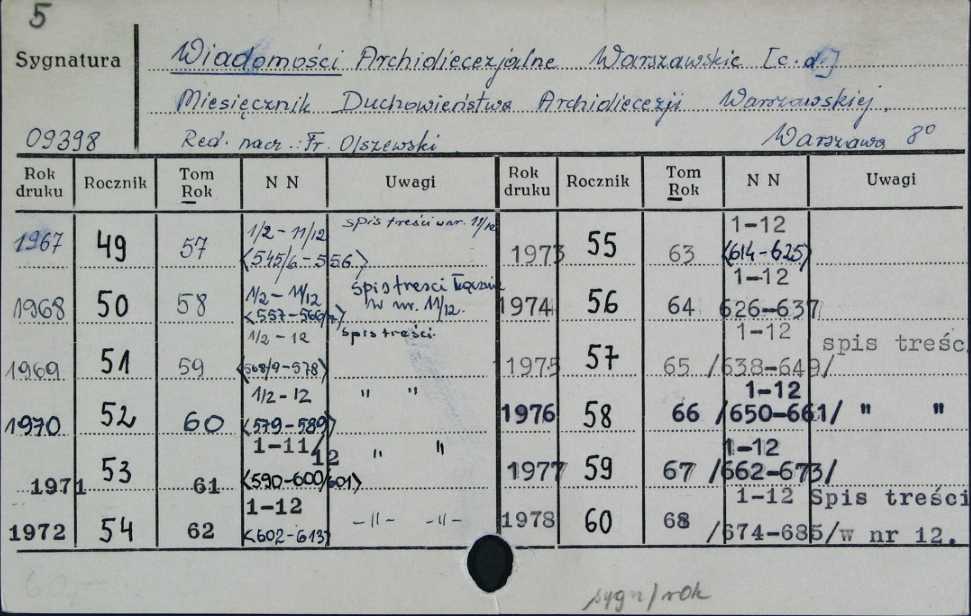 5
Sygnatura
Wiadomości Archidiecezjalne Warszawskie [c.d.]
Miesięcznik Duchowieństwa Archidiecezji Warszawskiej.
09398 Red. nacz.: Fr. Olszewski Warszawa 8°
Rok druku Rocznik Tom Rok N N Uwagi Rok druku Rocznik Tom Rok N N Uwagi
1967 49 57 1/2-11/12 <545/6-556> spis treści w nr. 11/12
1968 50 58 1/2-11/12 <557-566/7> spis treści łącznie w nr. 11/12.
1969 51 59 1/2-12 <568/9-578> spis treści
1970 52 60 1/2-12 <579-589> " "
1971 53 61 1-11/12 <590-600/601> " "
1972 54 62 1-12 <602-613> -"- -"-
1973 55 63 1-12 <614-625>
1974 56 64 1-12 626-637
1975 57 65 1-12 /638-649/ spis treśc
1976 58 66 1-12 /650-661/ " "
1977 59 67 1-12 /662-673/
1978 60 68 1-12 /674-685/ Spis treści w nr 12.
sygn/rok